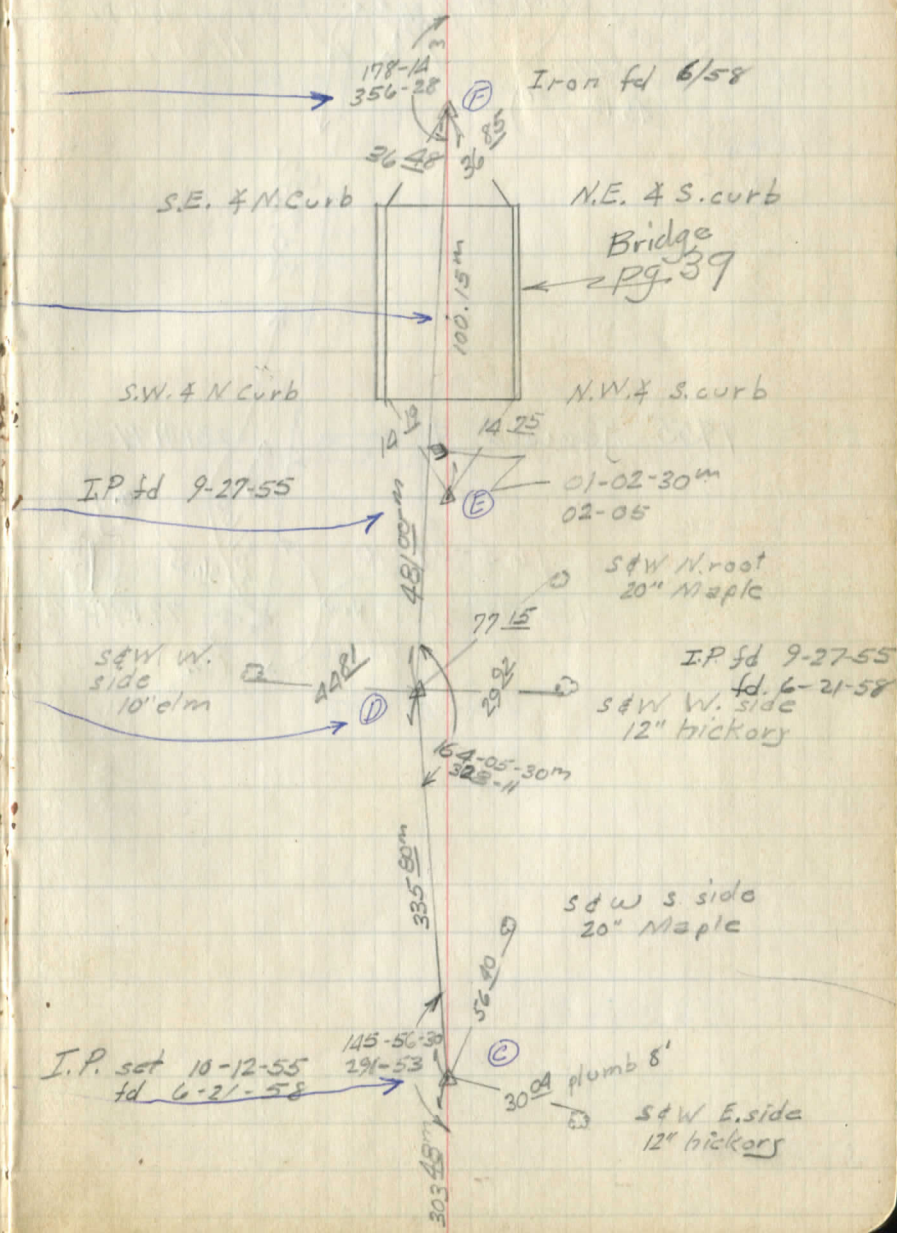 3
178-14
356-28
Iron fd 6/58
F
36 48
36 85
S.E. & N. Curb
N.E. & S. curb
Bridge
pg 39
100.15 m
S.W. & N Curb
N.W. & S. curb
14 25
I.P. fd 9-27-55
E
01-02-30 m
02-05
481 00 m
S & W N. root
20" Maple
77 15
S & W W.
side
10" elm
44 81
29 92
I.P. fd 9-27-55
fd. 6-21-58
S & W W. side
12" hickory
D
164-05-30 m
328-11
335 80 m
S & W S. side
20" Maple
56 40
145-56-30
291-53
C
I.P. set 10-12-55
fd 6-21-58
30 04 plumb 8'
S & W E. side
12" hickory
303 48 m